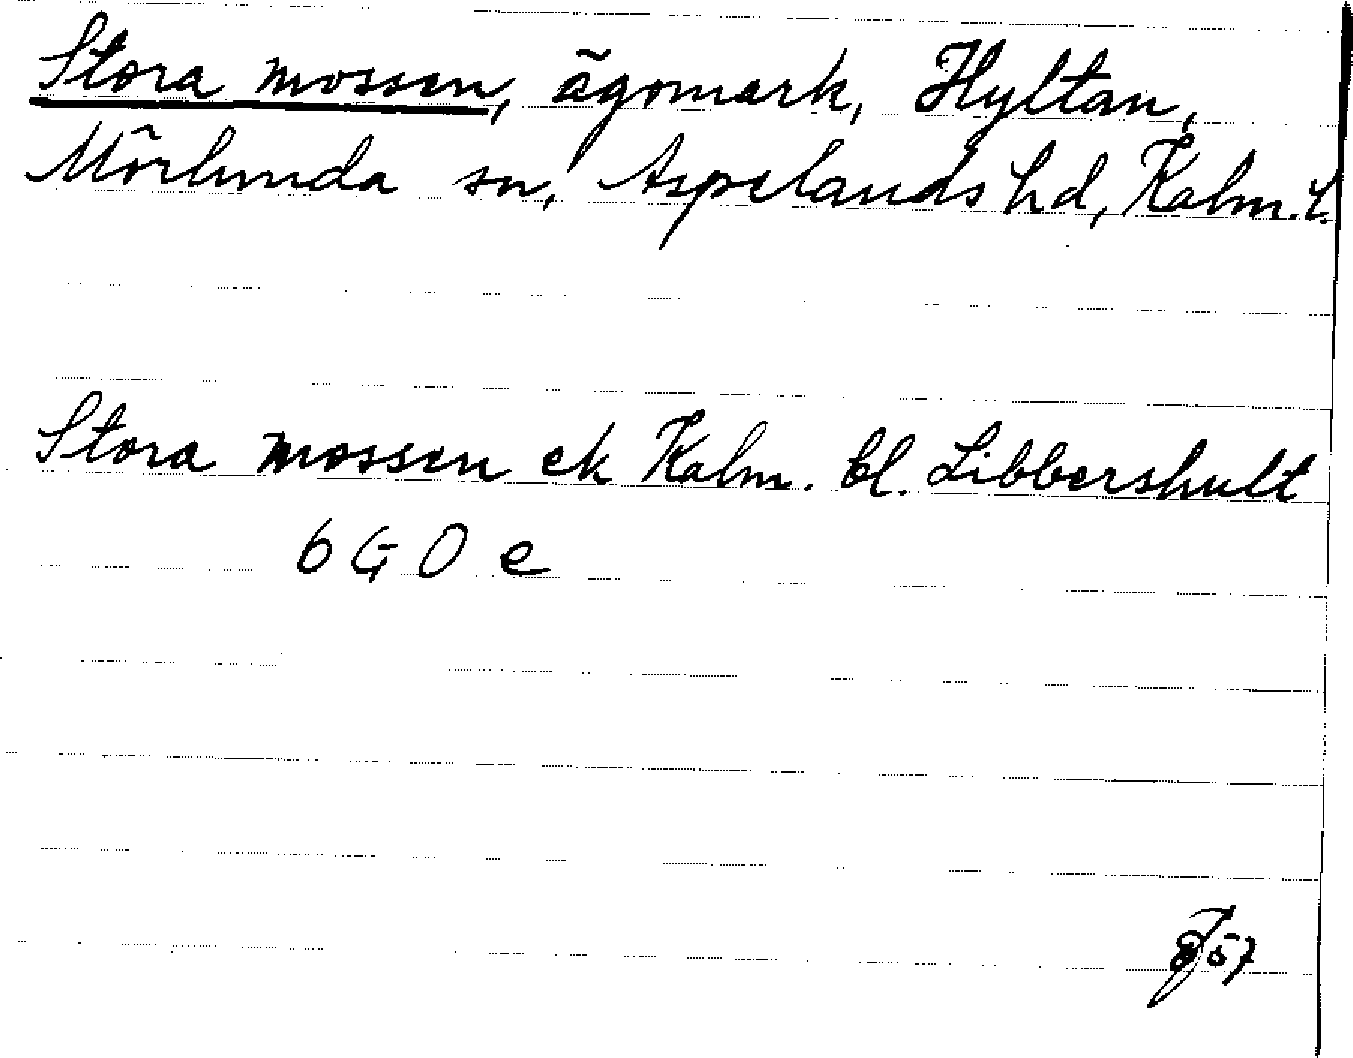 Stora mossen, ägomark, Hyltan,
Mörlunda sn, Aspelands hd, Kalm. l.
Stora mossen ek Kalm. bl. Libbershult
6 G 0 e
57